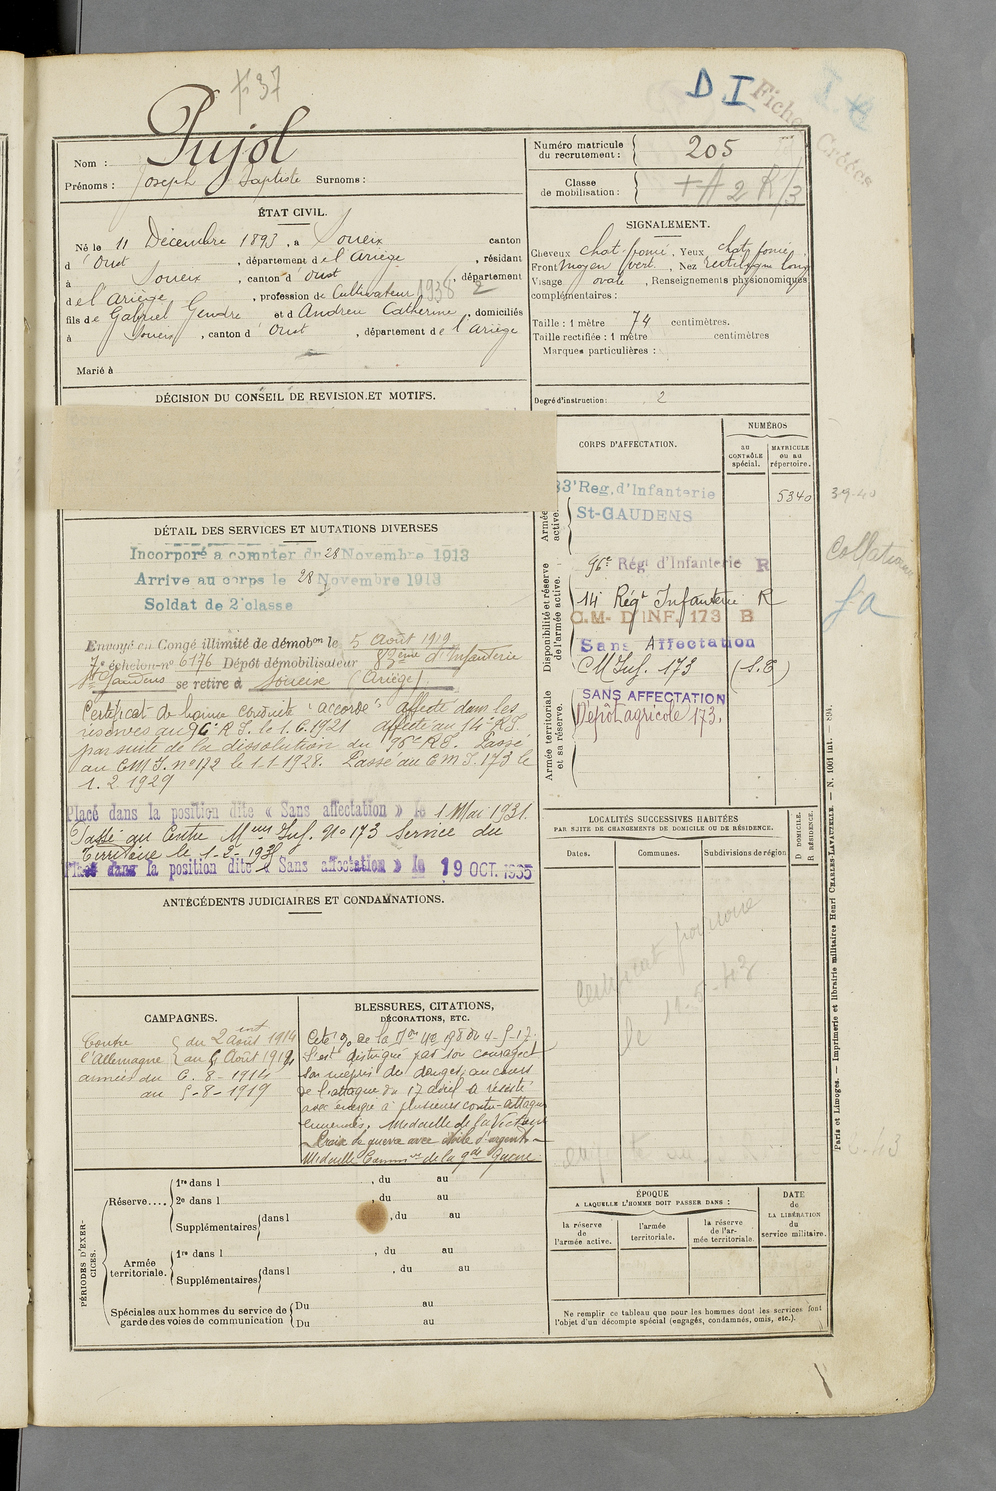 +37
D I
Fiches Créées
Nom : Pujol
Prénoms : Joseph Baptiste Surnoms :
Numéro matricule
du recrutement : 205
Classe
de mobilisation : + A 2 R/3
ÉTAT CIVIL.
Né le 11 Décembre 1893, à Soueix canton
d'Oust, département de l'Ariège, résidant
à Soueix, canton d'Oust, département
de l'Ariège, profession de Cultivateur 1938 2
fils de Gabriel Gendre et d'Andreu Catherine, domiciliés
à Soueix, canton d'Oust, département de l'Ariège
Marié à
SIGNALEMENT.
Cheveux chat. foncé, Yeux chat. foncé
Front moyen vert., Nez rectiligne long
Visage ovale, Renseignements physionomiques
complémentaires :
Taille : 1 mètre 74 centimètres.
Taille rectifiée : 1 mètre centimètres
Marques particulières :
Degré d'instruction : 2
DÉCISION DU CONSEIL DE REVISION ET MOTIFS.
CORPS D'AFFECTATION.
NUMÉROS
au
CONTRÔLE
spécial.
MATRICULE
ou au
répertoire.
Armée
active.
83e Reg. d'Infanterie
St-GAUDENS
5340
39-40
Disponibilité et réserve
de l'armée active.
96e Rég. d'Infanterie R
14 Régt Infanterie R
C.M. D'INF. 173 B
Sans Affectation
CM Inf. 173 (S.T)
Armée territoriale
et sa réserve.
SANS AFFECTATION
Dépôt agricole 173.
DÉTAIL DES SERVICES ET MUTATIONS DIVERSES
Incorporé a compter du 28 Novembre 1913
Arrive au corps le 28 Novembre 1913
Soldat de 2e classe
Envoyé en Congé illimité de démobon le 5 Août 1919
7e échelon no 6176 Dépôt démobilisateur 83ème d'Infanterie
St Gaudens se retire à Soueix (Ariège).
Certificat de bonne conduite "accordé". affecté dans les
réserves au 96e R.I. le 1.6.1921 affecté au 14e R.I.
par suite de la dissolution du 96e R.I. Passé
au C.M.I. no 172 le 1-1-1928. Passé au C.M.I. 173 le
1.2.1929
Placé dans la position dite « Sans affectation » le 1 Mai 1931.
Passé au Centre Mon Inf. no 173 Service du
Territoire le 1-2-
Placé dans la position dite « Sans affectation » le 19 OCT. 1935
ANTÉCÉDENTS JUDICIAIRES ET CONDAMNATIONS.
LOCALITÉS SUCCESSIVES HABITÉES
PAR SUITE DE CHANGEMENTS DE DOMICILE OU DE RÉSIDENCE.
Dates.
Communes.
Subdivisions de région
D DOMICILE.
R RÉSIDENCE.
Certificat
le 11-5-42
CAMPAGNES.
Contre du 2 août 1914
l'Allemagne au 5 Août 1914
armées du 6-8-1914
au 5-8-1919
BLESSURES, CITATIONS,
DÉCORATIONS, ETC.
Cité % de la Don no 198 du 4-5-17.
S'est distingué par son courage et
son mépris du danger, au cours
de l'attaque du 17 avril a résisté
avec énergie à plusieurs contre-attaques
ennemies. Médaille de la Victoire
Croix de guerre avec étoile d'argent
Médaille Commve de la gde guerre
PÉRIODES D'EXERCICES.
Réserve....
1re dans l , du au
2e dans l , du au
Supplémentaires dans l , du au
Armée
territoriale.
1re dans l , du au
Supplémentaires dans l , du au
Spéciales aux hommes du service de
garde des voies de communication
Du au
Du au
ÉPOQUE
A LAQUELLE L'HOMME DOIT PASSER DANS :
la réserve
de
l'armée active.
l'armée
territoriale.
la réserve
de l'ar-
mée territoriale.
DATE
de
LA LIBÉRATION
du
service militaire.
Ne remplir ce tableau que pour les hommes dont les services font
l'objet d'un décompte spécial (engagés, condamnés, omis, etc.).
Paris et Limoges. — Imprimerie et librairie militaires Henri CHARLES-LAVAUZELLE. — N. 1001 int. — 894.